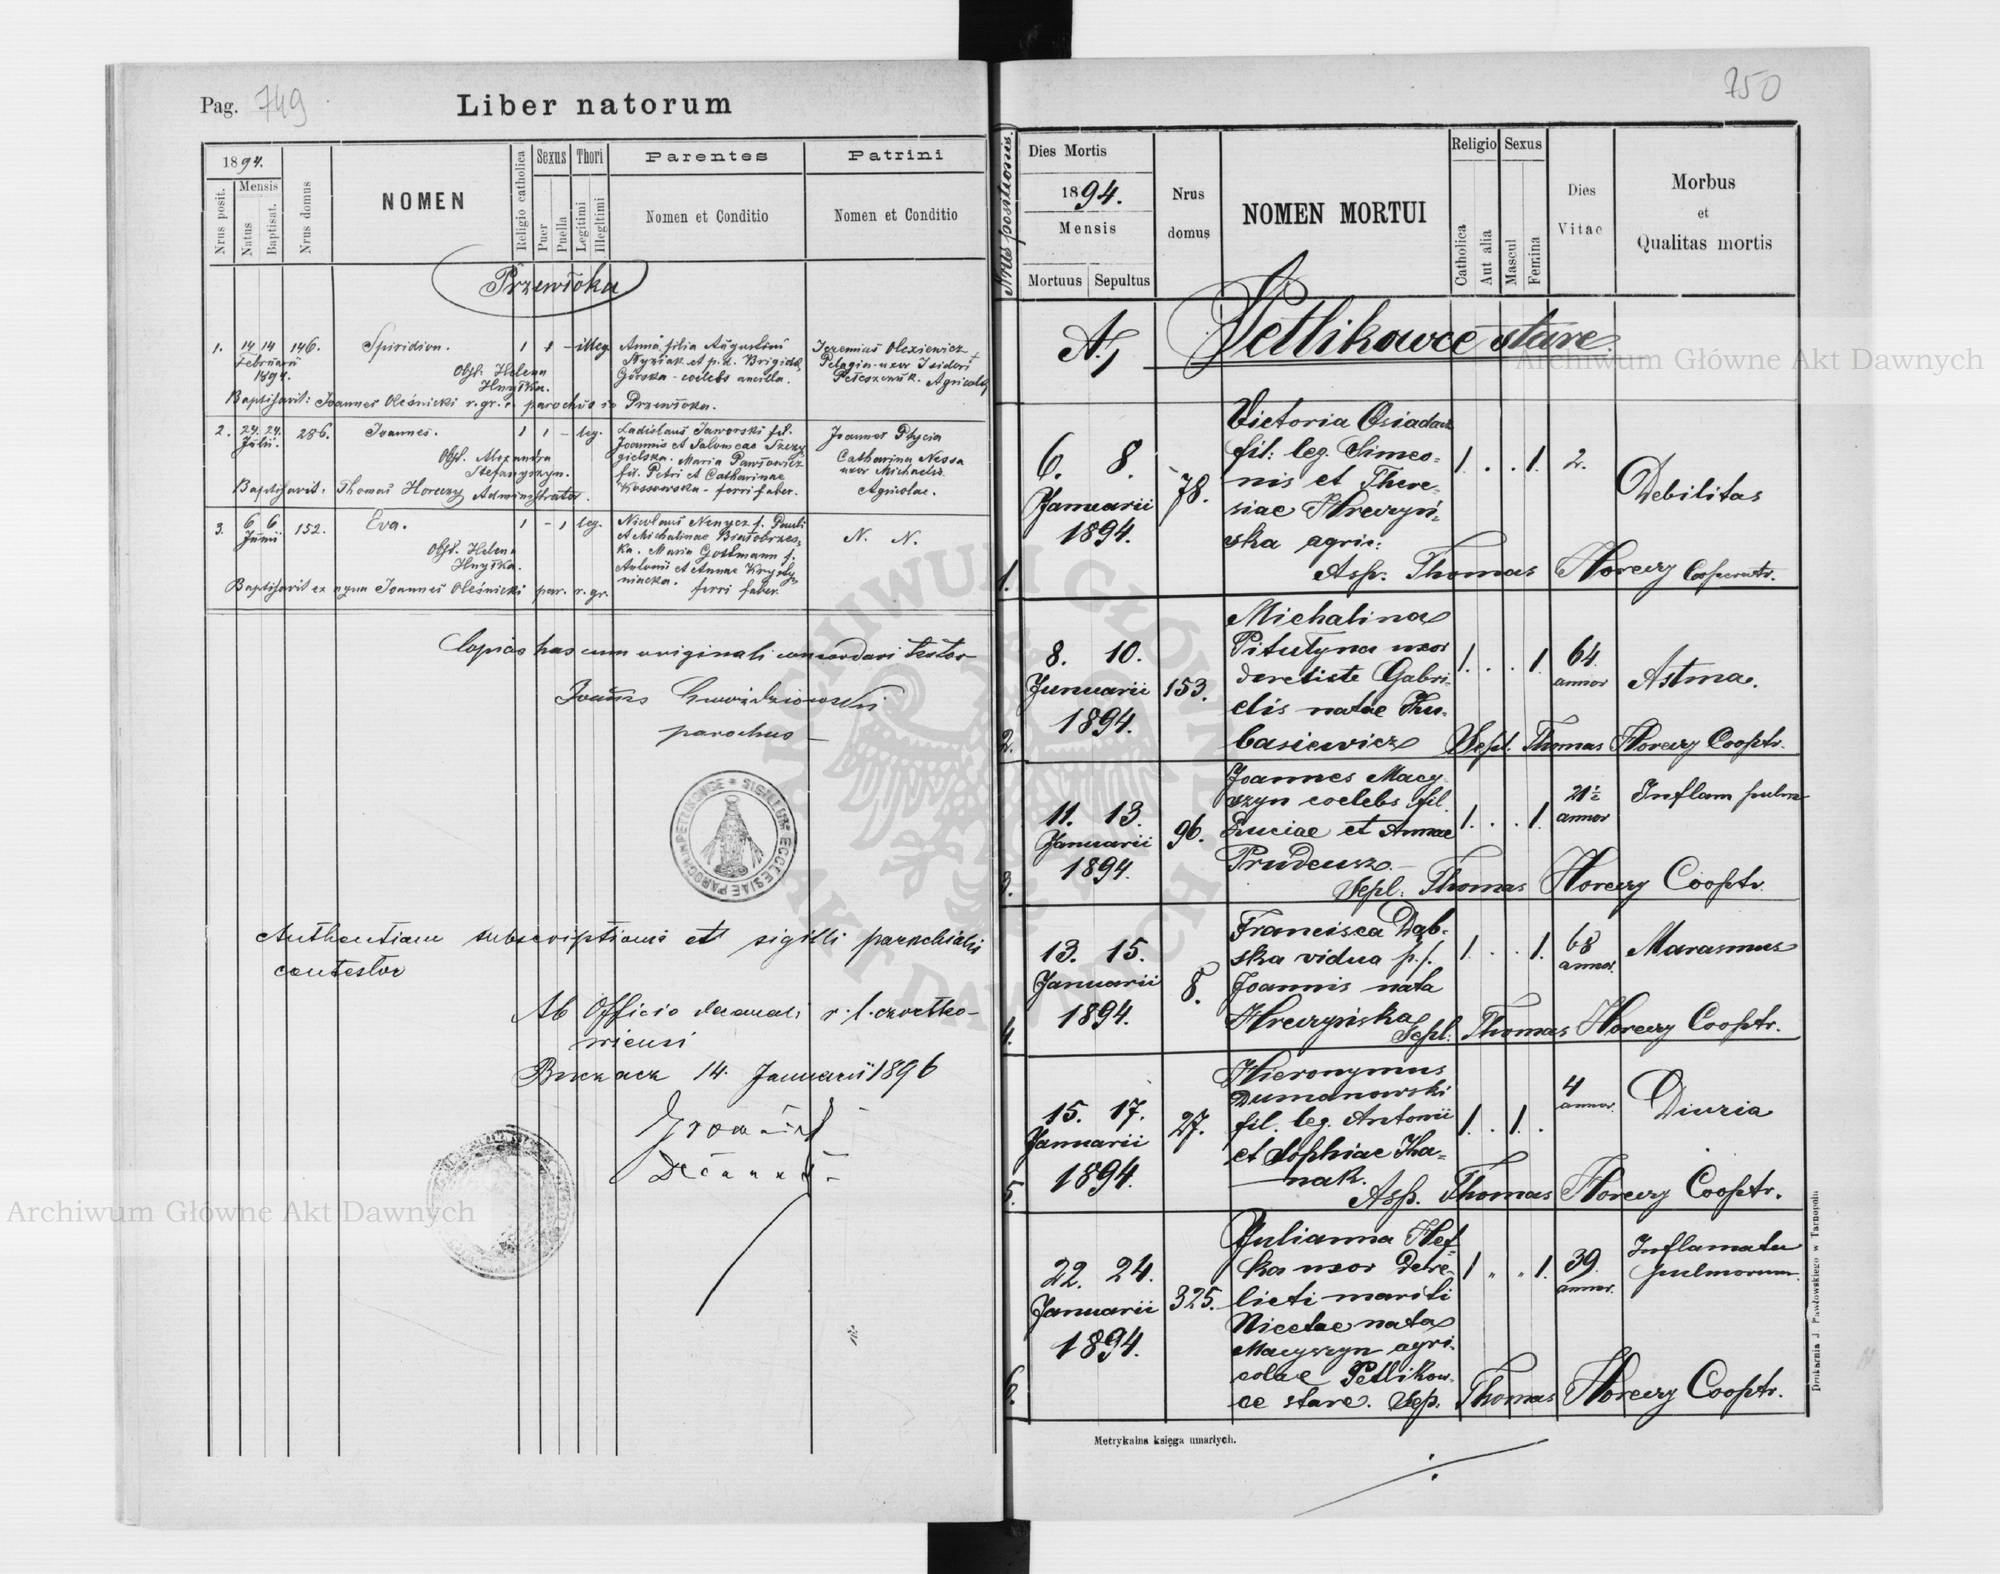 Pag. 749
Liber natorum
1894.
Nrus posit.
Mensis
Natus
Baptisat.
Nrus domus
NOMEN
Religio catholica
Sexus
Puer
Puella
Thori
Legitimi
Illegitimi
Parentes
Nomen et Conditio
Patrini
Nomen et Conditio
Przewłoka
1. 14 14 146. Spiridion. 1 1 - illeg. Anna filia Augustini
Februarii
1894.
Obst. Helena
Hnyłka.
Nyziak et p.d. Brigida
Górska - coelebs ancilla.
Jeremias Olexiewicz +
Pelagia uxor Isidori
Agricolae
Baptisavit: Joannes Oleśnicki r. gr. c. parochus in Przewłoka.
2. 24. 24. 286. Joannes. 1 1 - leg. Ladislaus Jaworski fil.
Julii.
Obst. Alexandra
Stefanyszyn.
Joannis et Salomeae
Maria Pawłowicz
fil. Petri et Catharinae
Kossowska - ferri faber.
Joannes Ptycia
Catharina Nessa
uxor Michaelis
Agricolae.
Baptisavit: Thomas Horeczy Administrator.
3. 6 6 152. Eva. 1 - 1 leg. Nicolaus Nenycz f. Pauli
Junii
Obst. Helena
Hnyłka.
et Michalinae Białobrzes-
ka. Maria Gottmann f.
Antonii et Annae
ferri faber.
N. N.
Baptisavit ex aqua Joannes Oleśnicki par. r. gr.
Copias has cum originali concordari testor
Joannes Gwoździowski
parochus
SIGILLUM ECCLESIAE PAROCH. IN PETLIKOWCE
Authentiam subscriptionis et sigilli parochialis
contestor
Ab Officio decanali r. l. czortko-
viensi
Buczacz 14. Januarii 1896
Gromnicki
Decanus
750
Nrus positionis.
Dies Mortis
1894.
Mensis
Mortuus
Sepultus
Nrus
domus
NOMEN MORTUI
Religio
Catholica
Aut alia
Sexus
Mascul
Femina
Dies
Vitae
Morbus
et
Qualitas mortis
A, Petlikowce stare
1. 6. 8. Januarii 1894. 78.
Victoria Osiadacz
fil: leg. Simeo-
nis et There-
siae Hreczyń-
ska agric:
1. . . 1. 2. Debilitas
Assp. Thomas Horeczy Cooperatr.
2. 8. 10. Januarii 1894. 153.
Michalina
Pitutyna uxor
derelicte Gabri-
elis natae Thu-
basiewicz
1. . . 1 64. annor Astma.
Sepl. Thomas Horeczy Cooptr.
3. 11. 13. Januarii 1894. 96.
Joannes Macy-
szyn coelebs fil.
Luciae et Annae
Prudeusz
1. . . 1. 21½ annor Inflam pulm
Sepl. Thomas Horeczy Cooptr.
4. 13. 15. Januarii 1894. 8.
Francisca Dąb-
ska vidua p. f.
Joannis nata
Hreczyńska
1. . . 1. 68 annor. Marasmus
Sepl: Thomas Horeczy Cooptr.
5. 15. 17. Januarii 1894. 27.
Hieronymus
Dumanowski
fil. leg. Antonii
et Sophiae Tha-
nak.
1. . 1. . 4 annor. Diuria
Assp. Thomas Horeczy Cooptr.
6. 22. 24. Januarii 1894. 325.
Julianna Hef-
ka uxor Dere-
licti mariti
Nicetae nata
Macyszyn agri-
colae Petlikow-
ce stare.
1 " " 1. 39. annor. Inflamatu
pulmorum.
Sep. Thomas Horeczy Cooptr.
Metrykalna księga umarłych.
Drukarnia J. Pawłowskiego w Tarnopolu
Archiwum Główne Akt Dawnych
Archiwum Główne Akt Dawnych
ARCHIWUM GŁÓWNE AKT DAWNYCH